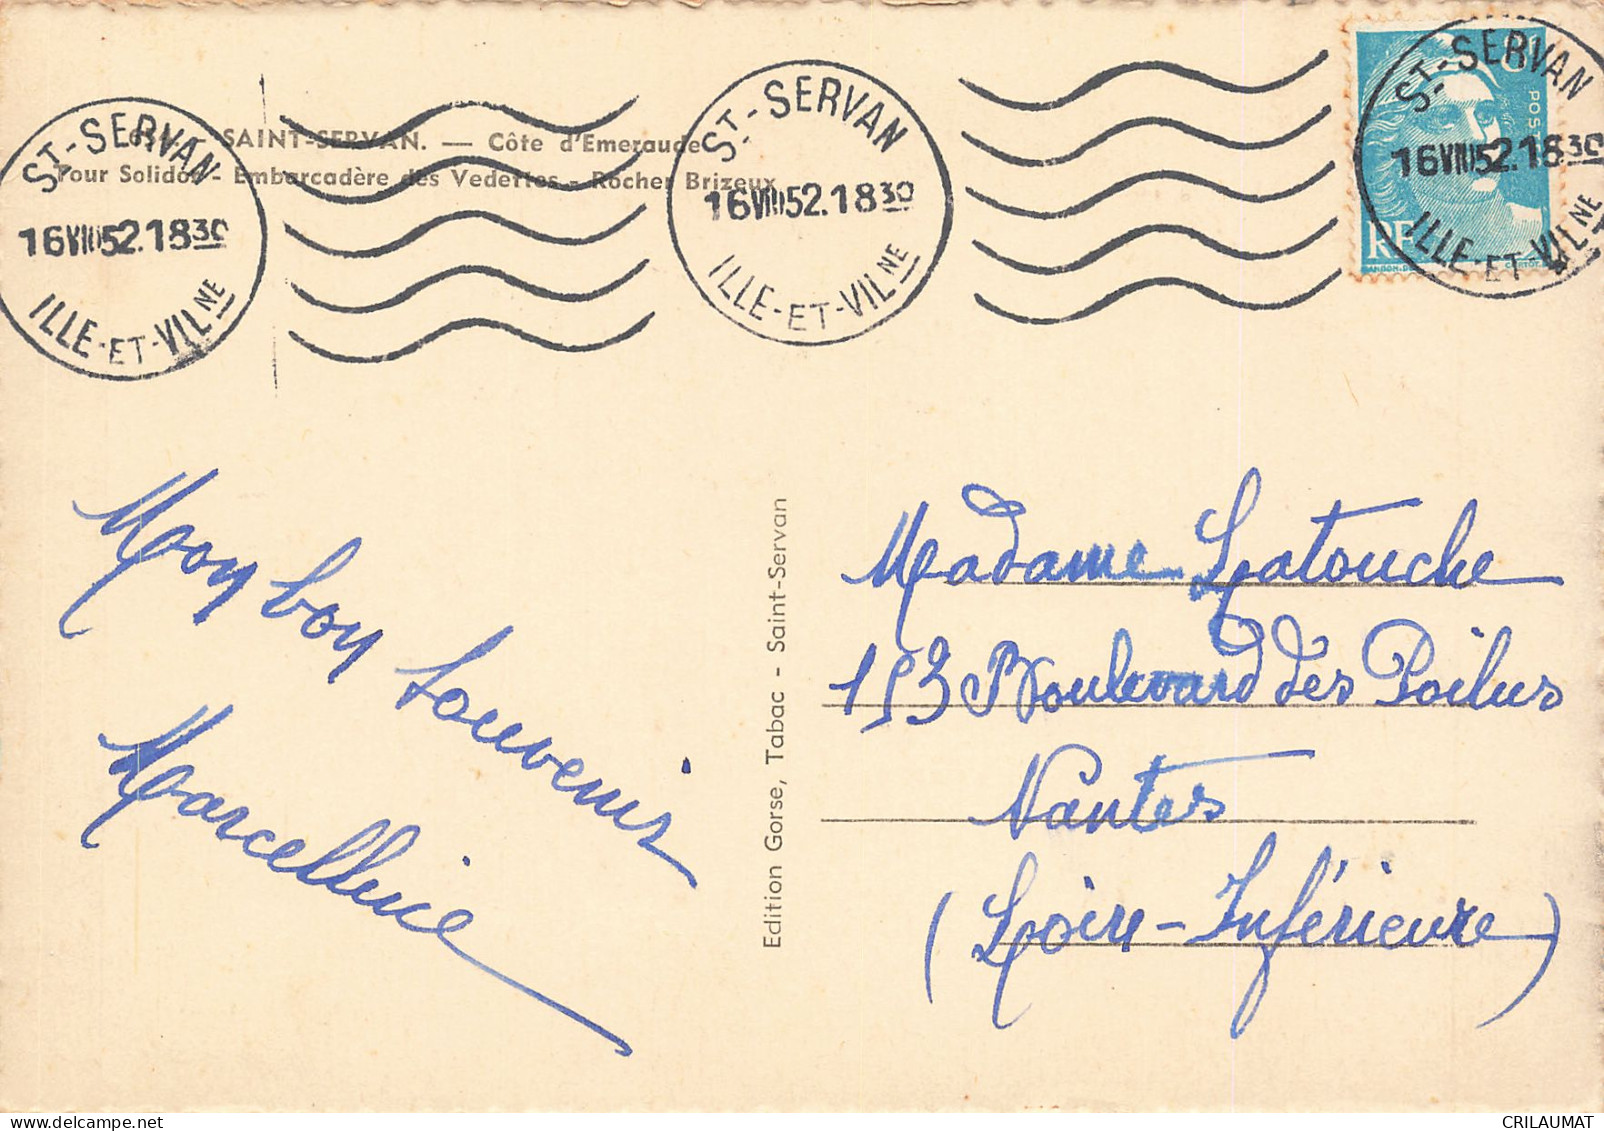 SAINT-SERVAN. — Côte d'Emeraude
Tour Solidor - Embarcadère des Vedettes - Rocher Brizeux
ST-SERVAN
16 VIII 52.18 30
ILLE-ET-VILNE
ST-SERVAN
16 VIII 52.18 30
ILLE-ET-VILNE
ST-SERVAN
16 VIII 52.18 30
ILLE-ET-VILNE
RF
Mon bon souvenir
Marcelline
Edition Gorse, Tabac - Saint-Servan
Madame Latouche
153 Boulevard des Poilus
Nantes
(Loire-Inférieure)
CRILAUMAT